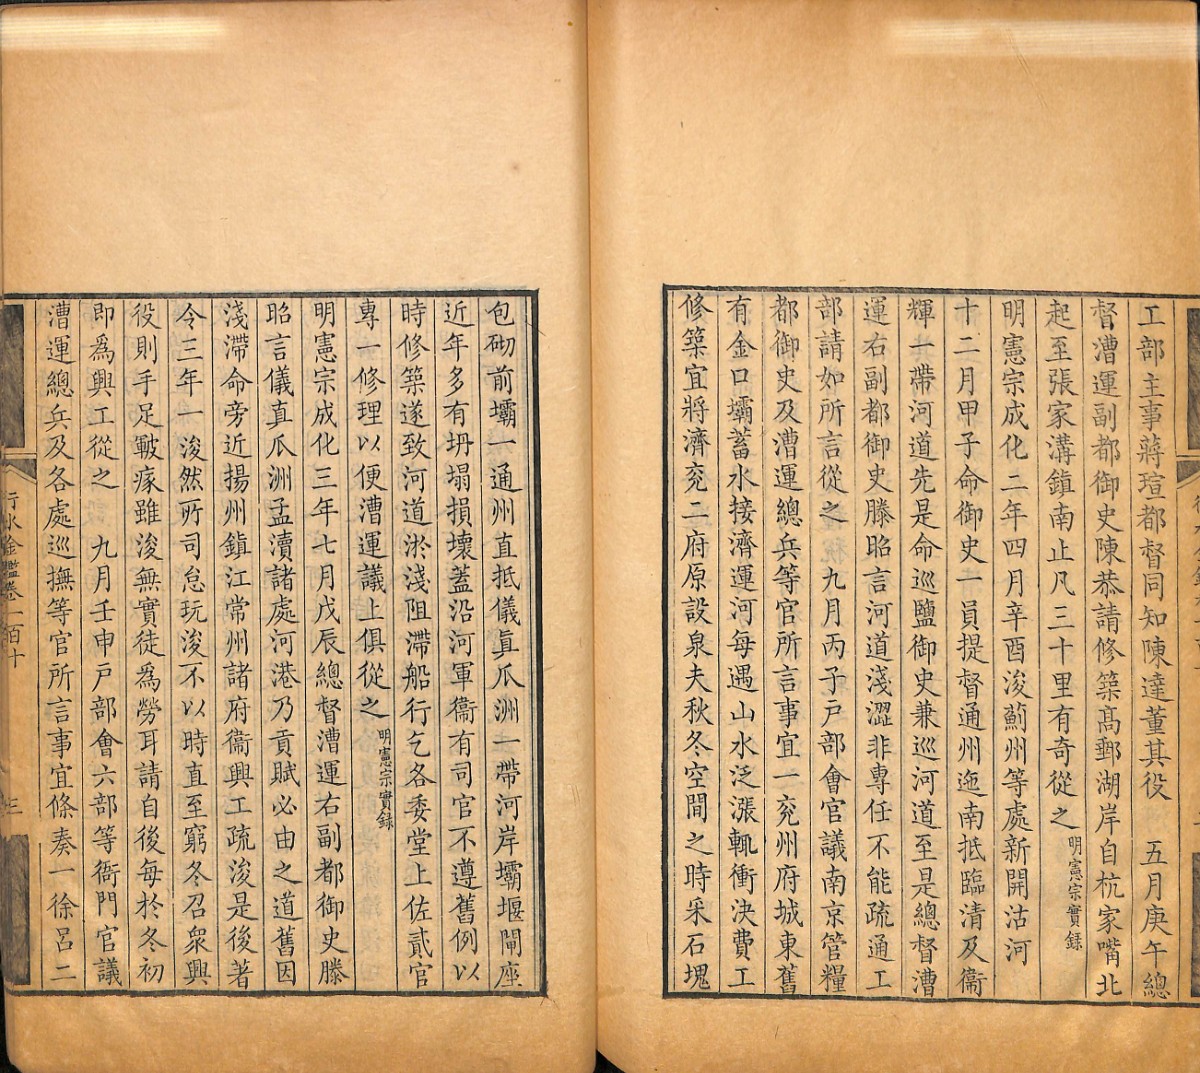 工部主事蔣瑄都督同知陳達董其役　五月庚午總
督漕運副都御史陳恭請修築高郵湖岸自杭家嘴北
起至張家溝鎮南止凡三十里有奇從之明憲宗實録
明憲宗成化二年四月辛酉浚薊州等處新開沽河
十二月甲子命御史一員提督通州迤南抵臨清及衞
輝一帶河道先是命巡鹽御史兼巡河道至是總督漕
運右副都御史滕昭言河道淺澀非專任不能疏通工
部請如所言從之　九月丙子戸部會官議南京管糧
都御史及漕運總兵等官所言事宜一兖州府城東舊
有金口壩蓄水接濟運河每遇山水泛漲輒衝決費工
修築宜將濟兖二府原設泉夫秋冬空閒之時采石塊
包砌前壩一通州直抵儀眞瓜洲一帶河岸壩堰閘座
近年多有坍塌損壞蓋沿河軍衞有司官不遵舊例以
時修築遂致河道淤淺阻滯船行乞各委堂上佐貳官
專一修理以便漕運議上俱從之明憲宗實録
明憲宗成化三年七月戊辰總督漕運右副都御史滕
昭言儀眞瓜洲孟瀆諸處河港乃貢賦必由之道舊因
淺滯命旁近揚州鎮江常州諸府衞興工疏浚是後著
令三年一浚然所司怠玩浚不以時直至窮冬召衆興
役則手足皸瘃雖浚無實徒爲勞耳請自後每於冬初
即爲興工從之　九月壬申戸部會六部等衙門官議
漕運總兵及各處巡撫等官所言事宜條奏一徐呂二
行水金鑑卷一百十
三